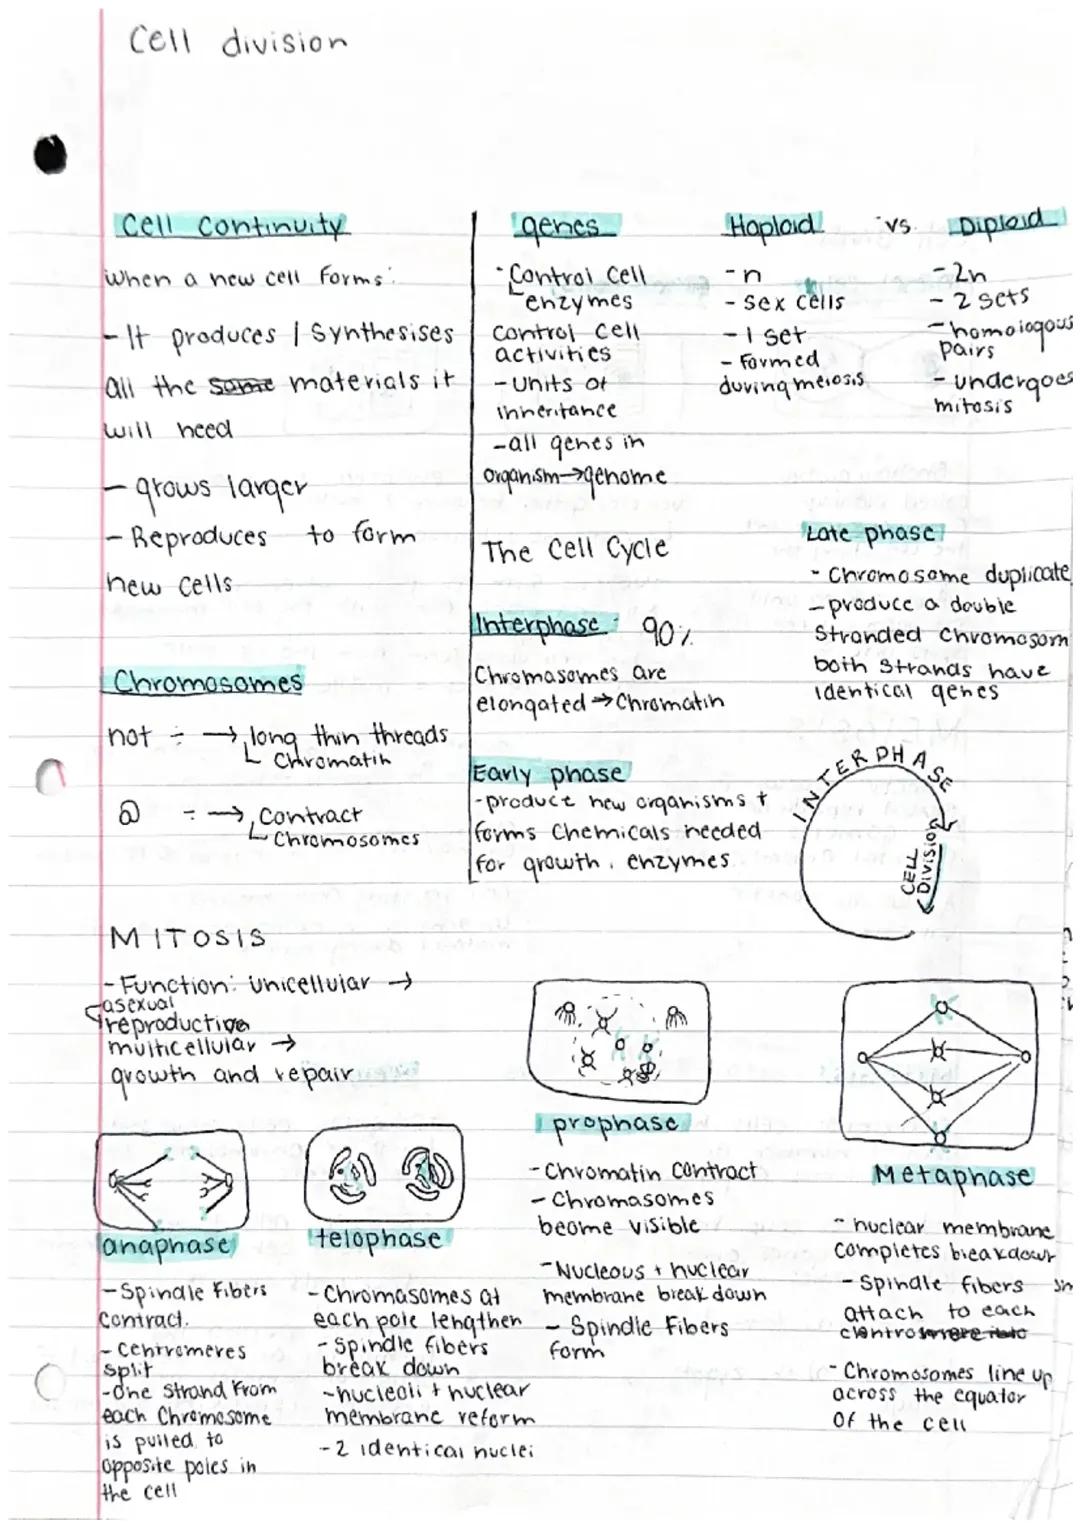 Cell division
Cell continuity
When a new cell forms:
- It produces / synthesises
all the same materials it
will need
- grows larger
- Reproduces to form
new cells
Chromosomes
not ÷ → long thin threads
Chromatin
@ ÷ → Contract
Chromosomes
genes
- Control Cell
enzymes
control cell
activities
- units of
inheritance
- all genes in
organism → genome
Haploid vs. Diploid
- n
- sex cells
- 1 set
- formed
during meiosis
- 2n
- 2 sets
- homologous
pairs
- undergoes
mitosis
The Cell Cycle
Interphase: 90%
Chromasomes are
elongated → Chromatin
Early phase
- produce new organisms +
forms chemicals needed
for growth. enzymes
Late phase
- Chromosome duplicate
- produce a double
stranded chromosom
both strands have
identical genes
INTERPHASE
CELL
DIVISION
MITOSIS
- Function: unicellular →
asexual
reproduction
multicellular →
growth and repair
prophase
- Chromatin contract
- Chromasomes
beome visible
- Nucleous + nuclear
membrane break down
- Spindle Fibers
form
Metaphase
- nuclear membrane
completes breakdown
- Spindle fibers
attach to each
- Chromosomes line up
across the equator
of the cell
anaphase
- Spindle Fibers
contract.
- centromeres
split
- one strand from
each Chromosome
is pulled to
opposite poles in
the cell
telophase
- Chromasomes at
each pole lengthen
- Spindle fibers
break down
- nucleoli + nuclear
membrane reform
- 2 identical nuclei